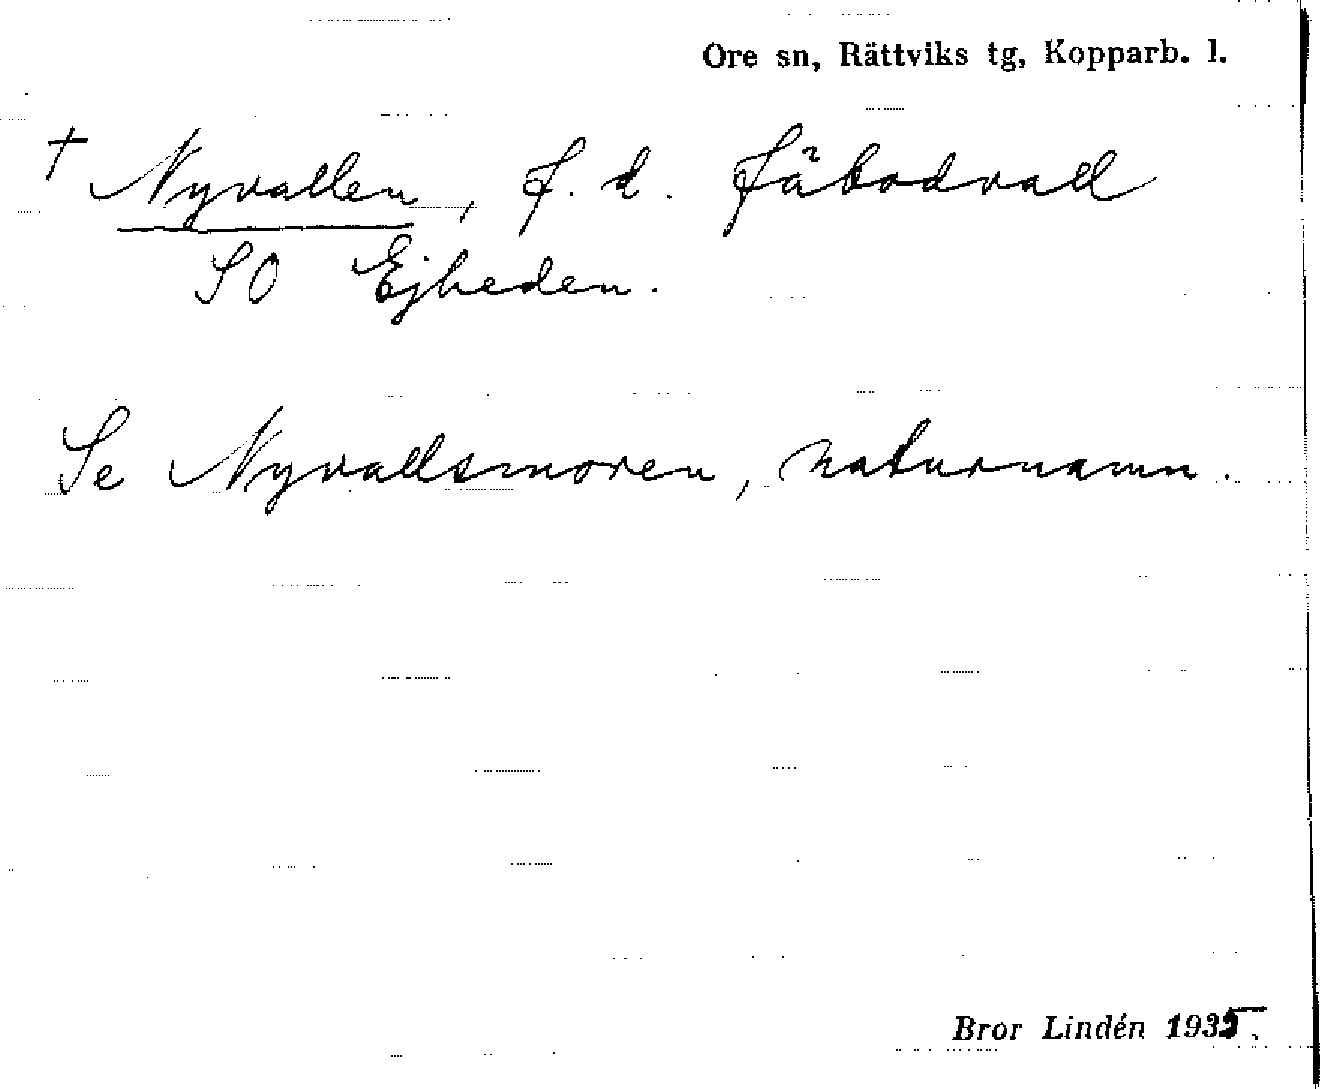 Ore sn, Rättviks tg, Kopparb. l.
† Nyvallen, f. d. fäbodvall
SO Ejheden.
Se Nyvallsmoren, naturnamn.
Bror Lindén 1935.